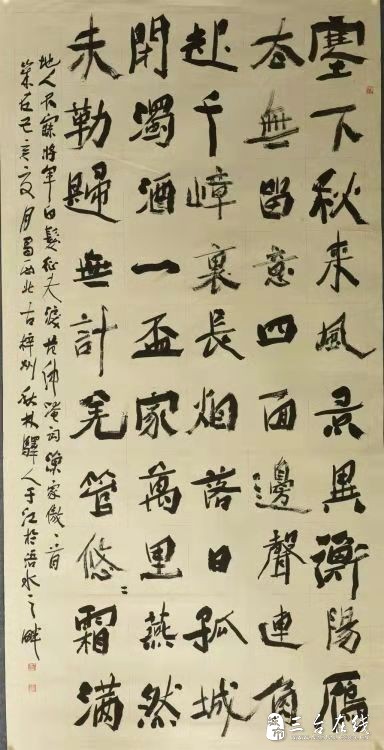 塞下秋来風景異衡陽鴈
去無留意四面邊聲連角
起千嶂裏長烟落日孤城
閉濁酒一盃家萬里燕然
未勒歸無計羌管悠〻霜满
地人不寐將軍白髮征夫淚范仲淹詞漁家傲一首
歲在己亥夏月蜀西北古梓州秋林驛人于江於涪水之畔
三台在线